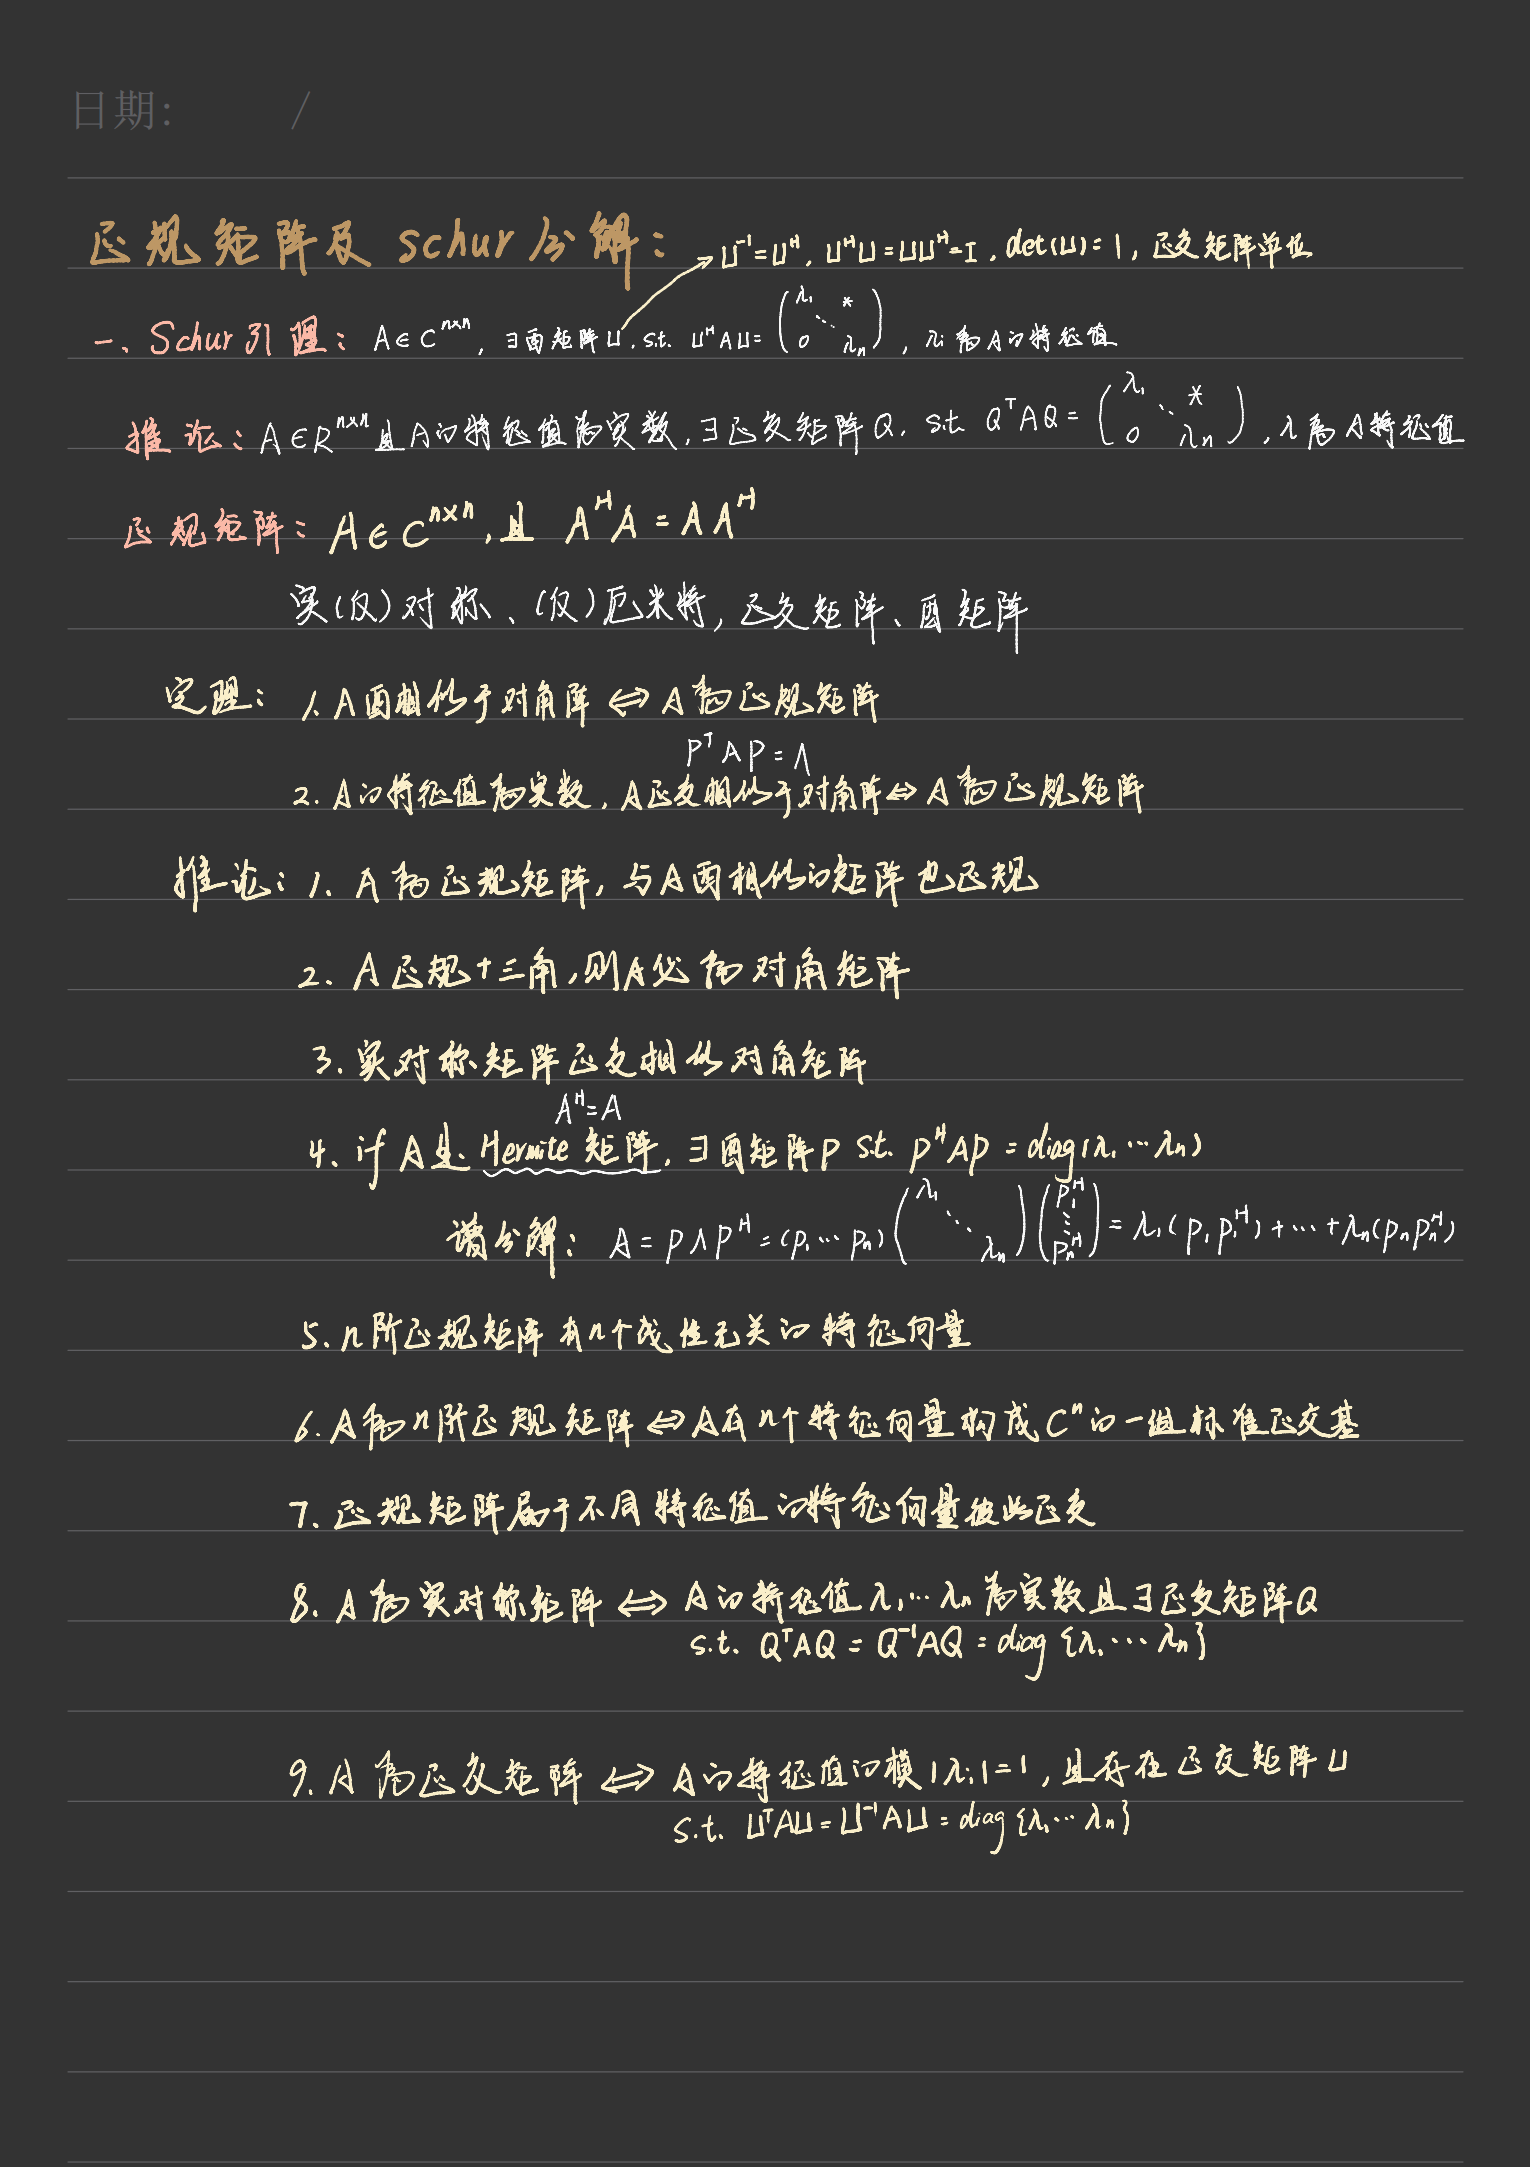 日期: /
正规矩阵及 schur 分解:
U⁻¹=Uᴴ, UᴴU=UUᴴ=I, det(U)=1, 正交矩阵单位
一、Schur引理: A∈Cⁿˣⁿ, ∃酉矩阵U, s.t. UᴴAU=(λ₁ ⋱ * 0 λₙ), λi为A的特征值
推论: A∈Rⁿˣⁿ且A的特征值为实数, ∃正交矩阵Q, s.t. QᵀAQ=(λ₁ ⋱ * 0 λₙ), λ为A特征值
正规矩阵: A∈Cⁿˣⁿ, 且 AᴴA=AAᴴ
实(反)对称、(反)厄米特, 正交矩阵、酉矩阵
定理: 1. A酉相似于对角阵 ⇔ A为正规矩阵
PᵀAP=Λ
2. A的特征值为实数, A正交相似于对角阵⇔A为正规矩阵
推论: 1. A为正规矩阵, 与A酉相似的矩阵也正规
2. A正规+三角, 则A必为对角矩阵
3. 实对称矩阵正交相似对角矩阵
Aᴴ=A
4. if A是 Hermite 矩阵, ∃酉矩阵P s.t. PᴴAP=diag(λ₁…λₙ)
谱分解: A=PΛPᴴ=(p₁…pₙ)(λ₁ ⋱ λₙ)(p₁ᴴ ⋮ pₙᴴ)=λ₁(p₁p₁ᴴ)+…+λₙ(pₙpₙᴴ)
5. n阶正规矩阵有n个线性无关的特征向量
6. A为n阶正规矩阵⇔A有n个特征向量构成Cⁿ的一组标准正交基
7. 正规矩阵属于不同特征值的特征向量彼此正交
8. A为实对称矩阵 ⇔ A的特征值λ₁…λₙ为实数且∃正交矩阵Q
s.t. QᵀAQ=Q⁻¹AQ=diag{λ₁…λₙ}
9. A为正交矩阵 ⇔ A的特征值的模|λi|=1, 且存在正交矩阵U
s.t. UᵀAU=U⁻¹AU=diag{λ₁…λₙ}